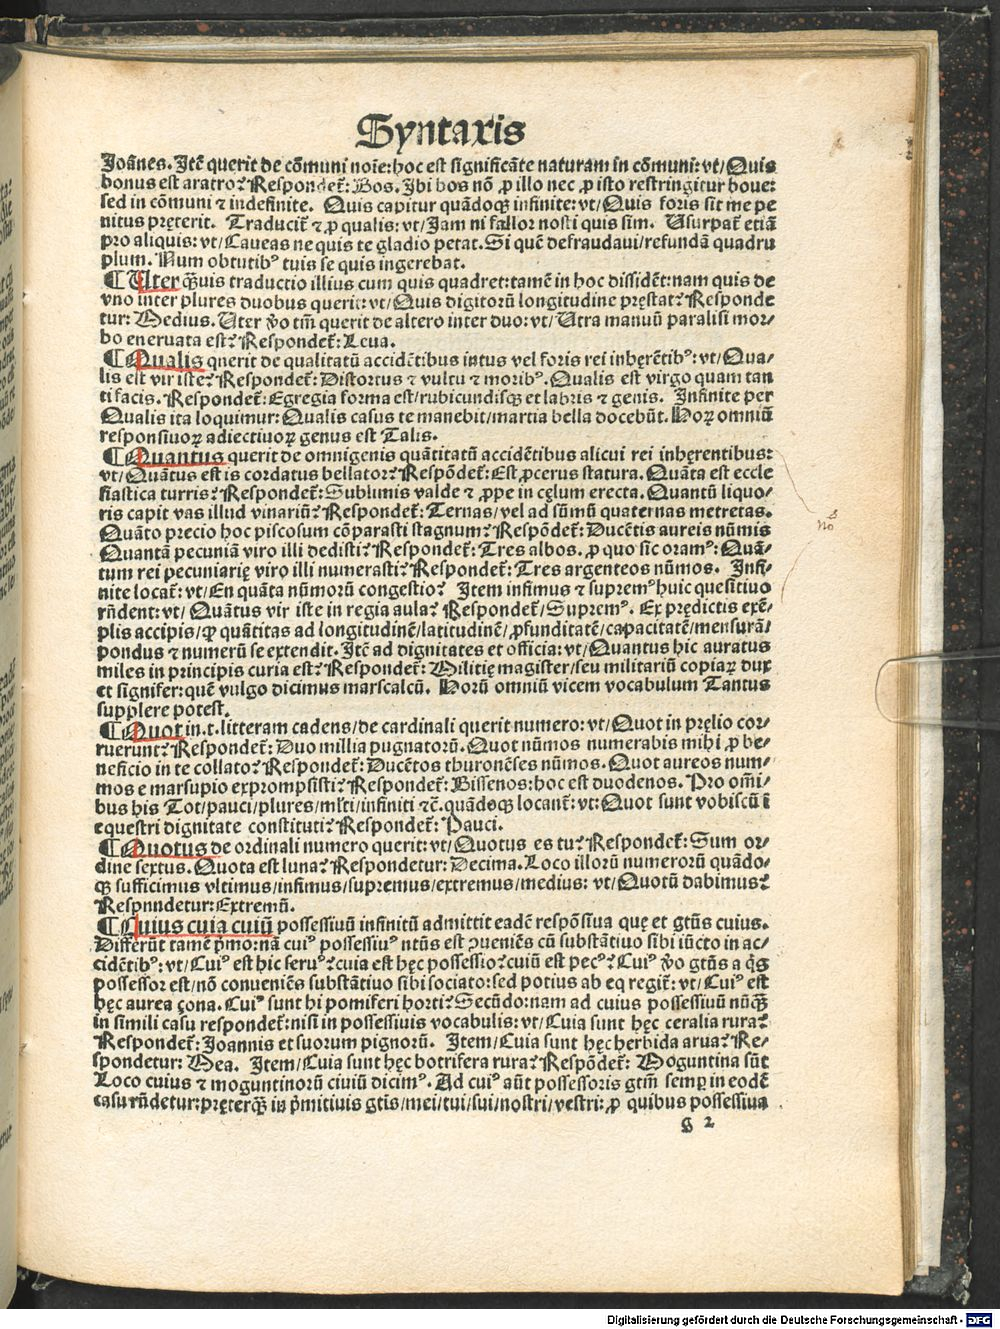 Syntaxis
Joānes. Itē querit de cōmuni noīe: hoc est significāte naturam in cōmuni: vt/ Quis
bonus est aratro? Respondet̄: Bos. Ibi bos nō ꝓ illo nec ꝓ isto restringitur boue:
sed in cōmuni ⁊ indefinite. Quis capitur quādoqꝫ infinite: vt/ Quis foris sit me pe
nitus preterit. Traducit̄ ⁊ ꝓ qualis: vt/ Jam ni fallor nosti quis sim. Usurpat̄ etiā
pro aliquis: vt/ Caueas ne quis te gladio petat. Si quē defraudaui/ refundā quadru
plum. Num obtutibꝰ tuis se quis ingerebat.
¶ Uter q̄uis traductio illius cum quis quadret: tamē in hoc dissidēt: nam quis de
vno inter plures duobus querit: vt/ Quis digitorū longitudine pręstat? Responde
tur: Medius. Uter v̄o tm̄ querit de altero inter duo: vt/ Utra manuū paralisi mor⸗
bo eneruata est? Respondet̄: Leua.
¶ Qualis querit de qualitatū accidētibus intus vel foris rei inhęrētibꝰ: vt/ Qua⸗
lis est vir iste? Respondet̄: Distortus ⁊ vultu ⁊ moribꝰ. Qualis est virgo quam tan
ti facis. Respondet̄: Egregia forma est/ rubicundisqꝫ et labris ⁊ genis. Infinite per
Qualis ita loquimur: Qualis casus te manebit/ martia bella docebūt. Hoꝝ omniū
responsiuoꝝ adiectiuoꝝ genus est Talis.
¶ Quantus querit de omnigenis quātitatū accidētibus alicui rei inhęrentibus:
vt/ Quātus est is cordatus bellator? Respōdet̄: Est ꝓcerus statura. Quāta est eccle
siastica turris? Respondet̄: Sublimis valde ⁊ ꝓpe in cęlum erecta. Quantū liquo⸗
ris capit vas illud vinariū? Respondet̄: Ternas/ vel ad sūmū quaternas metretas.
Quāto precio hoc piscosum cōparasti stagnum? Respōdet̄: Ducētis aureis nūmis
Quantā pecuniā viro illi dedisti? Respondet̄: Tres albos. ꝓ quo sic oramꝰ: Quā⸗
tum rei pecuniarię viro illi numerasti? Respondet̄: Tres argenteos nūmos. Infi⸗
nite locat̄: vt/ En quāta nūmorū congestio? Item infimus ⁊ supremꝰ huic quesitiuo
rn̄dent: vt/ Quātus vir iste in regia aula? Respondet̄/ Supremꝰ. Ex prędictis exē⸗
plis accipis/ ꝙ quātitas ad longitudinē/ latitudinē/ ꝓfunditatē/ capacitatē/ mensurā/
pondus ⁊ numerū se extendit. Itē ad dignitates et officia: vt/ Quantus hic auratus
miles in principis curia est? Respondet̄: Militię magister/ seu militariū copiaꝝ dux
et signifer: quē vulgo dicimus marscalcū. Horū omniū vicem vocabulum Tantus
supplere potest.
¶ Quot in .t. litteram cadens/ de cardinali querit numero: vt/ Quot in pręlio cor⸗
ruerunt? Respondet̄: Duo millia pugnatorū. Quot nūmos numerabis mihi ꝓ be⸗
neficio in te collato? Respondet̄: Ducētos thuronēses nūmos. Quot aureos num⸗
mos e marsupio exprompsisti? Respondet̄: Bissenos: hoc est duodenos. Pro om̄i
bus his Tot/ pauci/ plures/ ml̄ti/ infiniti ⁊c̄. quādoqꝫ locant̄: vt: Quot sunt vobiscū ī
equestri dignitate constituti? Respondet̄: Pauci.
¶ Quotus de ordinali numero querit: vt/ Quotus es tu? Respondet̄: Sum or⸗
dine sextus. Quota est luna? Respondetur: Decima. Loco illorū numerorū quādo⸗
qꝫ sufficimus vltimus/ infimus/ supremus/ extremus/ medius: vt/ Quotū dabimus?
Respnndetur: Extremū.
¶ Quius cuia cuiū possessiuū infinitū admittit eadē respōsiua quę et gtūs cuius.
Differūt tamē p̄mo: nā cuiꝰ possessiuꝰ ntūs est ꝯueniēs cū substātiuo sibi iūcto in ac⸗
cidētibꝰ: vt/ Cuiꝰ est hic seruꝰ? cuia est hęc possessio? cuiū est pecꝰ? Cuiꝰ v̄o gtūs a q̄s
possessor est/ nō conueniēs substātiuo sibi sociato: sed potius ab eq regit̄: vt/ Cuiꝰ est
hęc aurea çona. Cuiꝰ sunt hi pomiferi horti? Secūdo: nam ad cuius possessiuū nūq̄ꝫ
in simili casu respondet̄: nisi in possessiuis vocabulis: vt/ Cuia sunt hęc ceralia rura?
Respondet̄: Joannis et suorum pignorū. Item/ Cuia sunt hęc herbida arua? Re⸗
spondetur: Mea. Item/ Cuia sunt hęc botrifera rura? Respōdet̄: Moguntina sūt
Loco cuius ⁊ moguntinorū ciuiū dicimꝰ. Ad cuiꝰ aūt possessoris gtm̄ semꝑ in eodē
casu rn̄detur: pręterq̄ꝫ in p̄mitiuis gtīs/ mei/ tui/ sui/ nostri/ vestri: ꝓ quibus possessiua
g 2
Digitalisierung gefördert durch die Deutsche Forschungsgemeinschaft - DFG